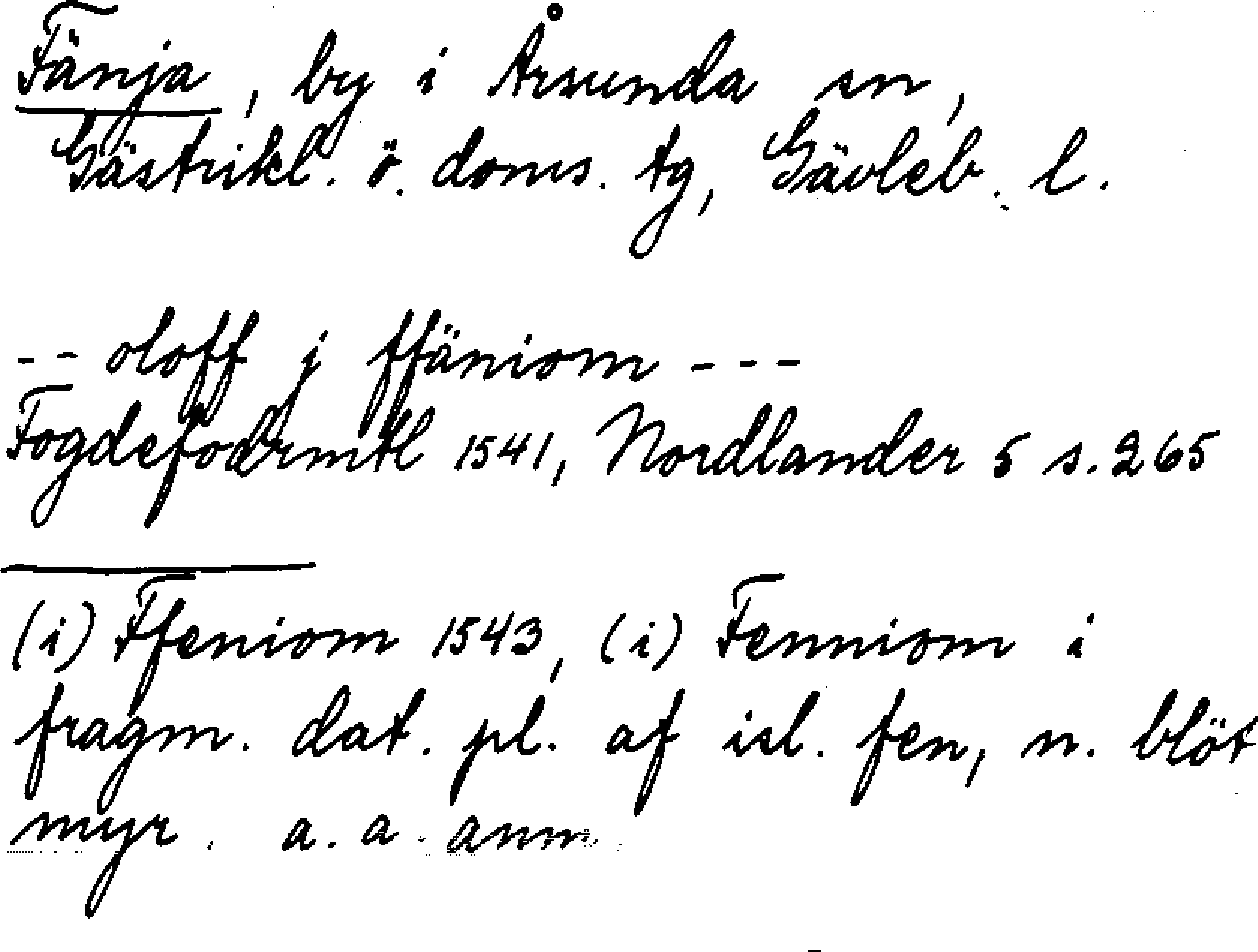 Fänja, by i Årsunda sn,
Gästrikl. ö. doms. tg, Gävleb. l.
-- oloff j ffäniom ---
Fogdefodrmtl 1541, Nordlander 5 s. 265
(i) Ffeniom 1543, (i) Fenniom i
fragm. dat. pl. af isl. fen, n. blöt
myr. a. a. anm.